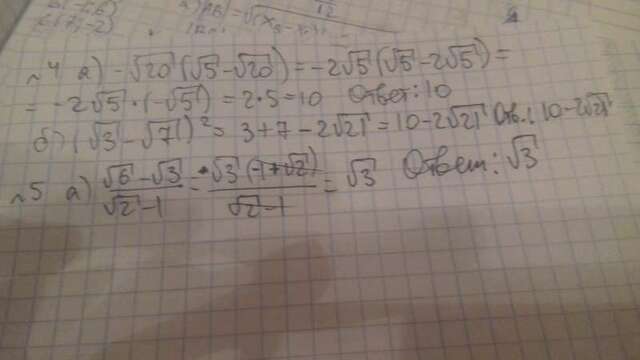 12
№4 а) -√20 (√5 - √20) = -2√5 (√5 - 2√5) =
= -2√5 · (-√5) = 2·5 = 10 Ответ: 10
б) (√3 - √7)² = 3+7 - 2√21 = 10 - 2√21 Отв.: 10 - 2√21
№5 а) (√6 - √3)/(√2 - 1) = √3 (-1+√2)/(√2 - 1) = √3 Ответ: √3